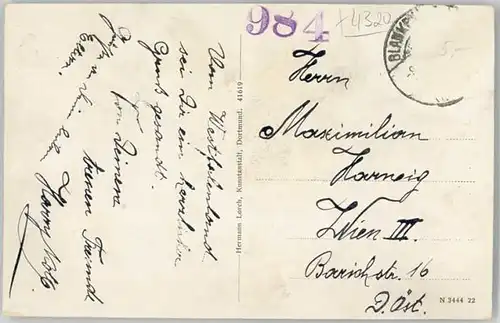 984
+4320
BLANKEN
5,-
Vom Westfalenland
sei Dir ein herzlicher
Gruß gesandt.
Von Deinem
treuen Freund
Harry
Hermann Lorch, Kunstanstalt, Dortmund. 41619
Herrn
Maximilian
Harneig
Wien III.
Barichstr. 16
D. Öst.
N 3444 22